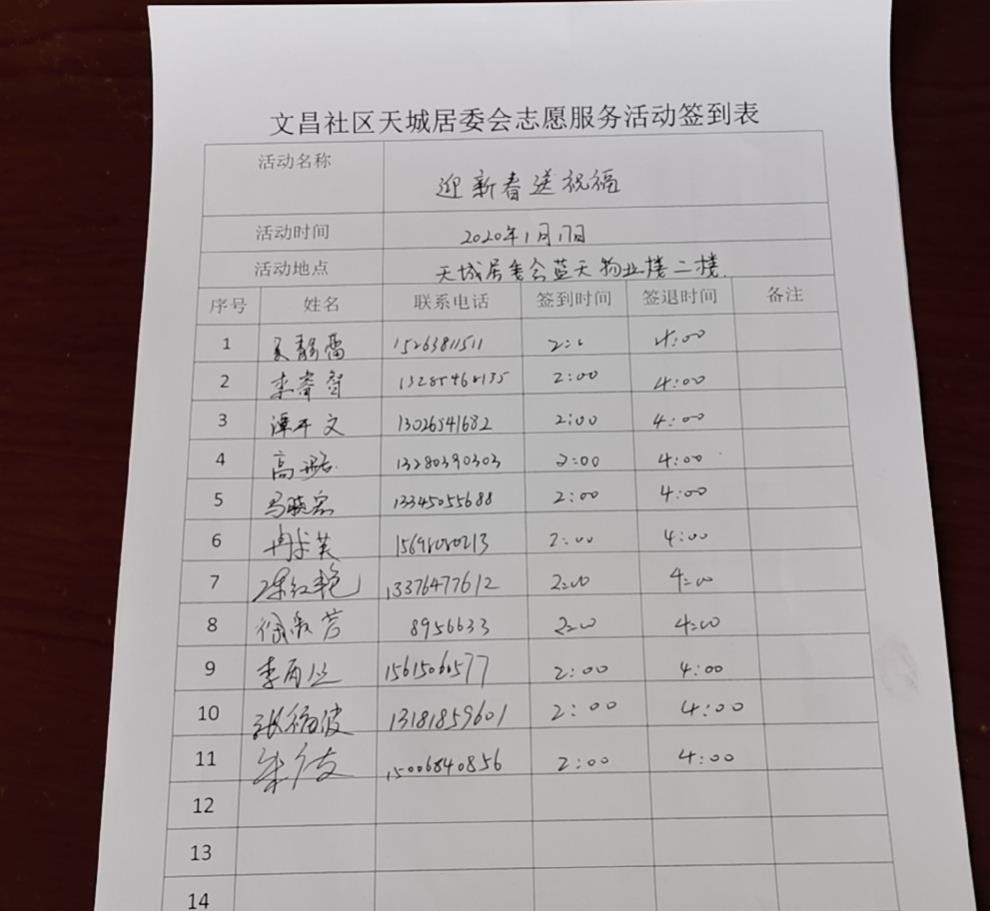 文昌社区天城居委会志愿服务活动签到表
活动名称 迎新春送祝福
活动时间 2020年1月17日
活动地点 天城居委会蓝天物业楼二楼
序号 姓名 联系电话 签到时间 签退时间 备注
1 15263811511 4:00
2 2:00 4:00
3 13026541682 2:00 4:00
4 高 13280390303 2:00 4:00
5 马晓宏 13345055688 2:00 4:00
6 2:00 4:00
7 陈红艳 13376477612 2:00 4:00
8 8956633 2:00 4:00
9 2:00 4:00
10 张福波 13181859601 2:00 4:00
11 15006840856 2:00 4:00
12
13
14